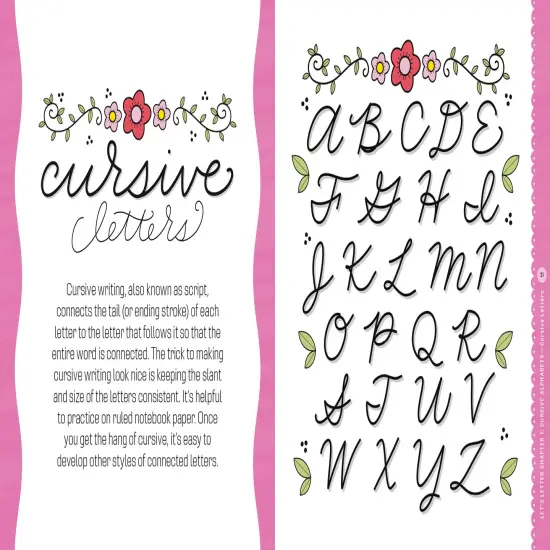 cursive
letters
Cursive writing, also known as script,
connects the tail (or ending stroke) of each
letter to the letter that follows it so that the
entire word is connected. The trick to making
cursive writing look nice is keeping the slant
and size of the letters consistent. It's helpful
to practice on ruled notebook paper. Once
you get the hang of cursive, it's easy to
develop other styles of connected letters.
A B C D E
F G H I
J K L M N
O P Q R
S T U V
W X Y Z
LET'S LETTER CHAPTER 1: CURSIVE ALPHABETS — Cursive Letters